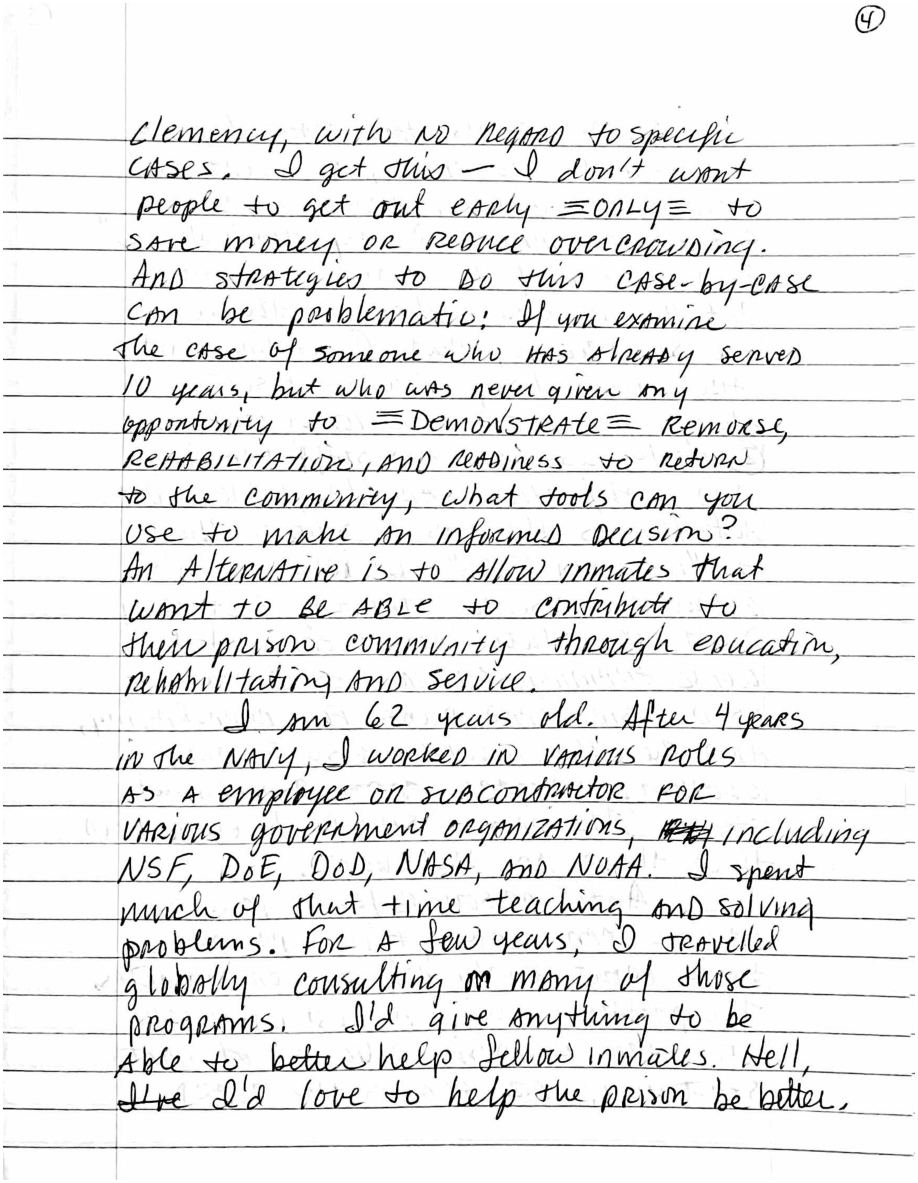 4
Clemency, with no regard to specific
cases. I get this — I don't want
people to get out early ≡only≡ to
save money or reduce overcrowding.
And strategies to do this case-by-case
can be problematic: If you examine
the case of someone who has already served
10 years, but who was never given any
opportunity to ≡Demonstrate≡ Remorse,
Rehabilitation, and readiness to return
to the community, what tools can you
use to make an informed decision?
An Alternative is to allow inmates that
want to be able to contribute to
their prison community through education,
rehabilitation, and service.
I am 62 years old. After 4 years
in the Navy, I worked in various roles
as a employee or subcontractor for
various government organizations, including
NSF, DoE, DoD, NASA, and NOAA. I spent
much of that time teaching and solving
problems. For a few years, I travelled
globally consulting on many of those
programs. I'd give anything to be
able to better help fellow inmates. Hell,
I've I'd love to help the prison be better.